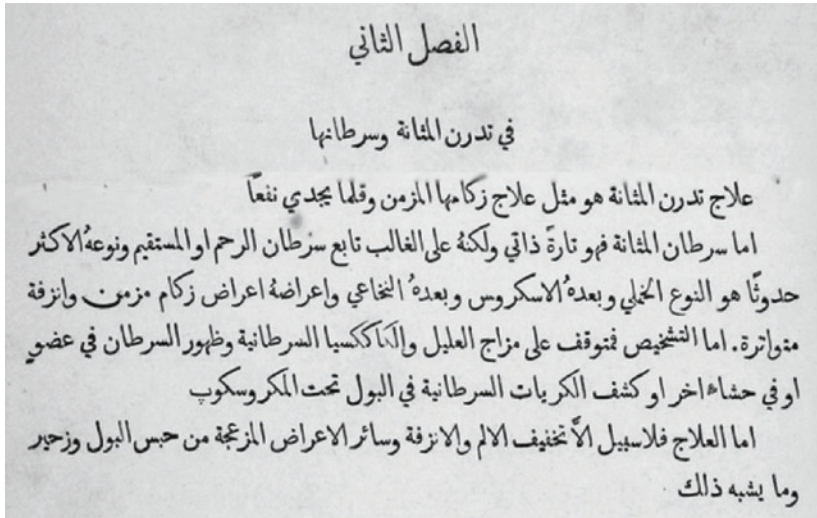 الفصل الثاني
في تدرن المثانة وسرطانها
علاج تدرن المثانة هو مثل علاج زكامها المزمن وقلما يجدي نفعًا
اما سرطان المثانة فهو تارةً ذاتي ولكنهُ على الغالب تابع سرطان الرحم او المستقيم ونوعهُ الاكثر
حدوثًا هو النوع الخملي وبعدهُ الاسكروس وبعدهُ النخاعي واعراضهُ اعراض زكام مزمن وانزفة
متواترة. اما التشخيص فمتوقف على مزاج العليل والكاككسيا السرطانية وظهور السرطان في عضوٍ
او في حشاء اخر او كشف الكريات السرطانية في البول تحت المكروسكوپ
اما العلاج فلاسبيل الاَّ تخفيف الالم والانزفة وسائر الاعراض المزعجة من حبس البول وزحير
وما يشبه ذلك